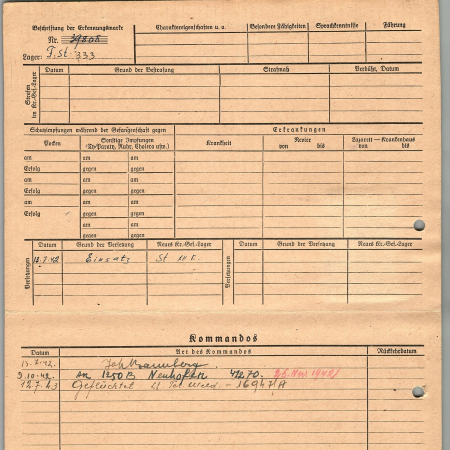 Beschriftung der Erkennungsmarke
Nr. 39808
Lager: F.St. 333
Charaktereigenschaften u. a.
Besondere Fähigkeiten
Sprachkenntnisse
Führung
Strafen im Kr.-Gef.-Lager
Datum Grund der Bestrafung Strafmaß Verbüßt, Datum
Schutzimpfungen während der Gefangenschaft gegen
Erkrankungen
Pocken
Sonstige Impfungen
(Ty-Paraty, Ruhr, Cholera usw.)
Krankheit
Revier
von bis
Lazarett — Krankenhaus
von bis
am am
Erfolg gegen
am am
Erfolg gegen
am am
Erfolg gegen
am
gegen
Versetzungen
Datum Grund der Versetzung Neues Kr.-Gef.-Lager
Versetzungen
Datum Grund der Versetzung Neues Kr.-Gef.-Lager
13.7.42. Einsatz St
Kommandos
Datum Art des Kommandos Rückkehrdatum
13.7.42.
9.10.42. an 1250 B 4270.
12.7.43 Geflüchtet